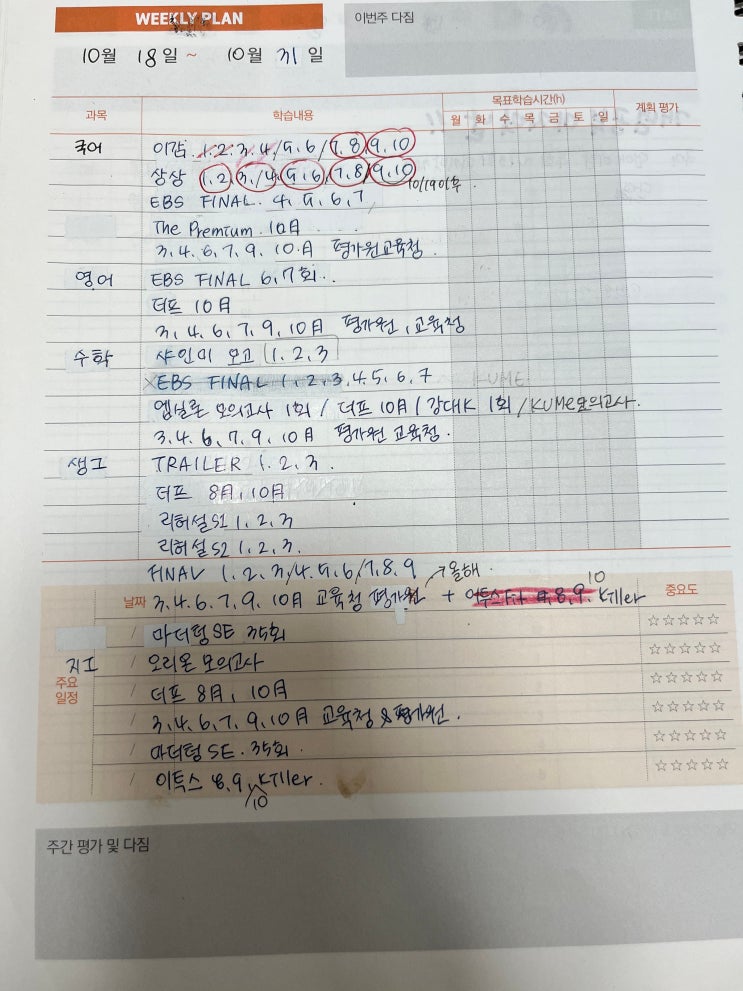 WEEKLY PLAN
이번주 다짐
10월 18일 ~ 10월 31일
과목 학습내용 목표학습시간(h) 계획 평가
월 화 수 목 금 토 일
국어 이감 1.2.3.4/5.6/7.8/9.10
상상 1.2/3./4/5.6/7.8/9.10 10/19이후.
EBS FINAL. 4. 5. 6. 7
The Premium. 10月
3. 4. 6. 7. 9. 10.月 평가원교육청.
영어 EBS FINAL 6. 7회.
더프 10月
3. 4. 6. 7. 9. 10月 평가원, 교육청
수학 샤인미 모고 1. 2. 3
EBS FINAL 1. 2. 3. 4. 5. 6. 7 KUME
엡실론 모의고사 1회 / 더프 10月 / 강대K 1회 / KUME모의고사.
3. 4. 6. 7. 9. 10月 평가원 교육청.
생그 TRAILER 1. 2. 3.
더프 8月, 10月
리허설S1 1. 2. 3
리허설S2 1. 2. 3.
FINAL 1. 2. 3/4. 5. 6/7. 8. 9 →올해.
날짜 3. 4. 6. 7. 9. 10月 교육청 평가원 + 8. 9. 10 KIller 중요도
/ 마더텅 SE 35회 ☆☆☆☆☆
지I / 오리온 모의고사 ☆☆☆☆☆
주요 일정 / 더프 8月, 10月 ☆☆☆☆☆
/ 3. 4. 6. 7. 9. 10月 교육청 & 평가원. ☆☆☆☆☆
/ 마더텅 SE. 35회. ☆☆☆☆☆
/ 이투스 8. 9. 10 KIller. ☆☆☆☆☆
주간 평가 및 다짐